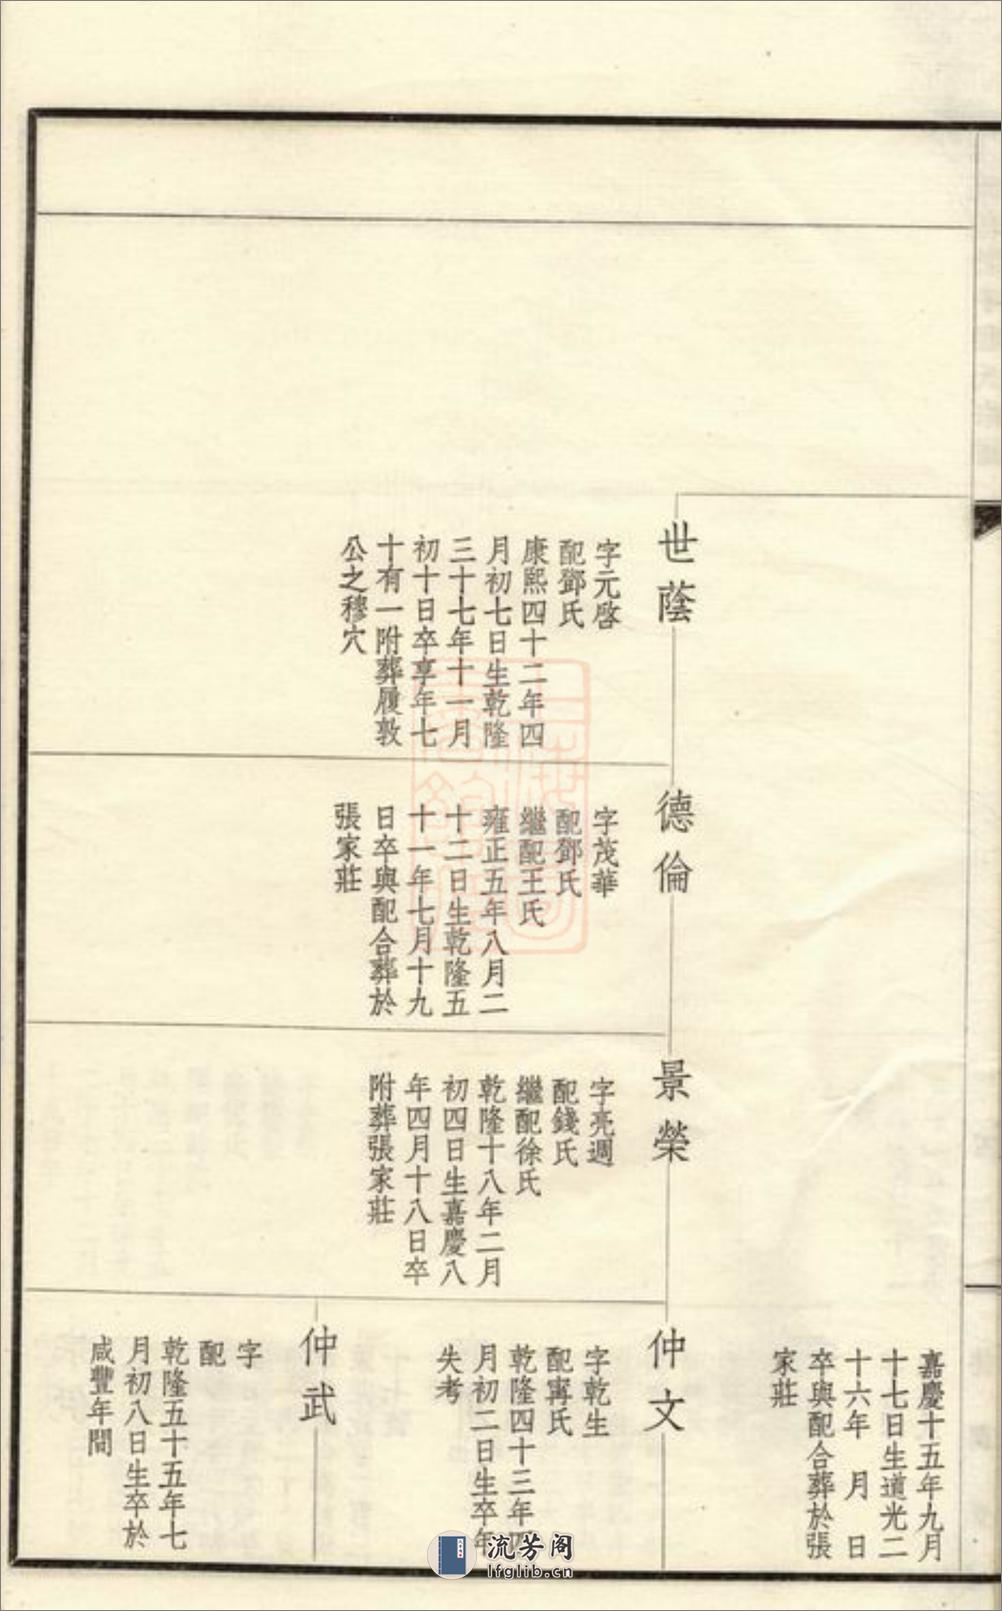 世蔭
字元啓
配鄧氏
康熙四十二年四
月初七日生乾隆
三十七年十一月
初十日卒享年七
十有一附葬履敦
公之穆穴
德倫
字茂華
配鄧氏
繼配王氏
雍正五年八月二
十二日生乾隆五
十一年七月十九
日卒與配合葬於
張家莊
景榮
字亮週
配錢氏
繼配徐氏
乾隆十八年二月
初四日生嘉慶八
年四月十八日卒
附葬張家莊
嘉慶十五年九月
十七日生道光二
十六年 月 日
卒與配合葬於張
家莊
仲文
字乾生
配甯氏
乾隆四十三年四
月初二日生卒年
失考
仲武
字
配
乾隆五十五年七
月初八日生卒於
咸豐年間
流芳阁
lfglib.cn